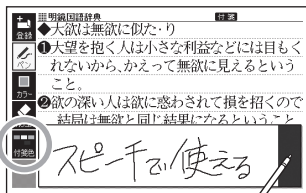 明鏡国語辞典 付箋
登録
◆大欲は無欲に似た・り
❶大望を抱く人は小さな利益などには目もく
れないから、かえって無欲に見えるという
こと。
ペン
カラー
❷欲の深い人は欲に惑わされて損を招くので
結局は無欲と同じ結果になるということ
付箋色
スピーチで使える